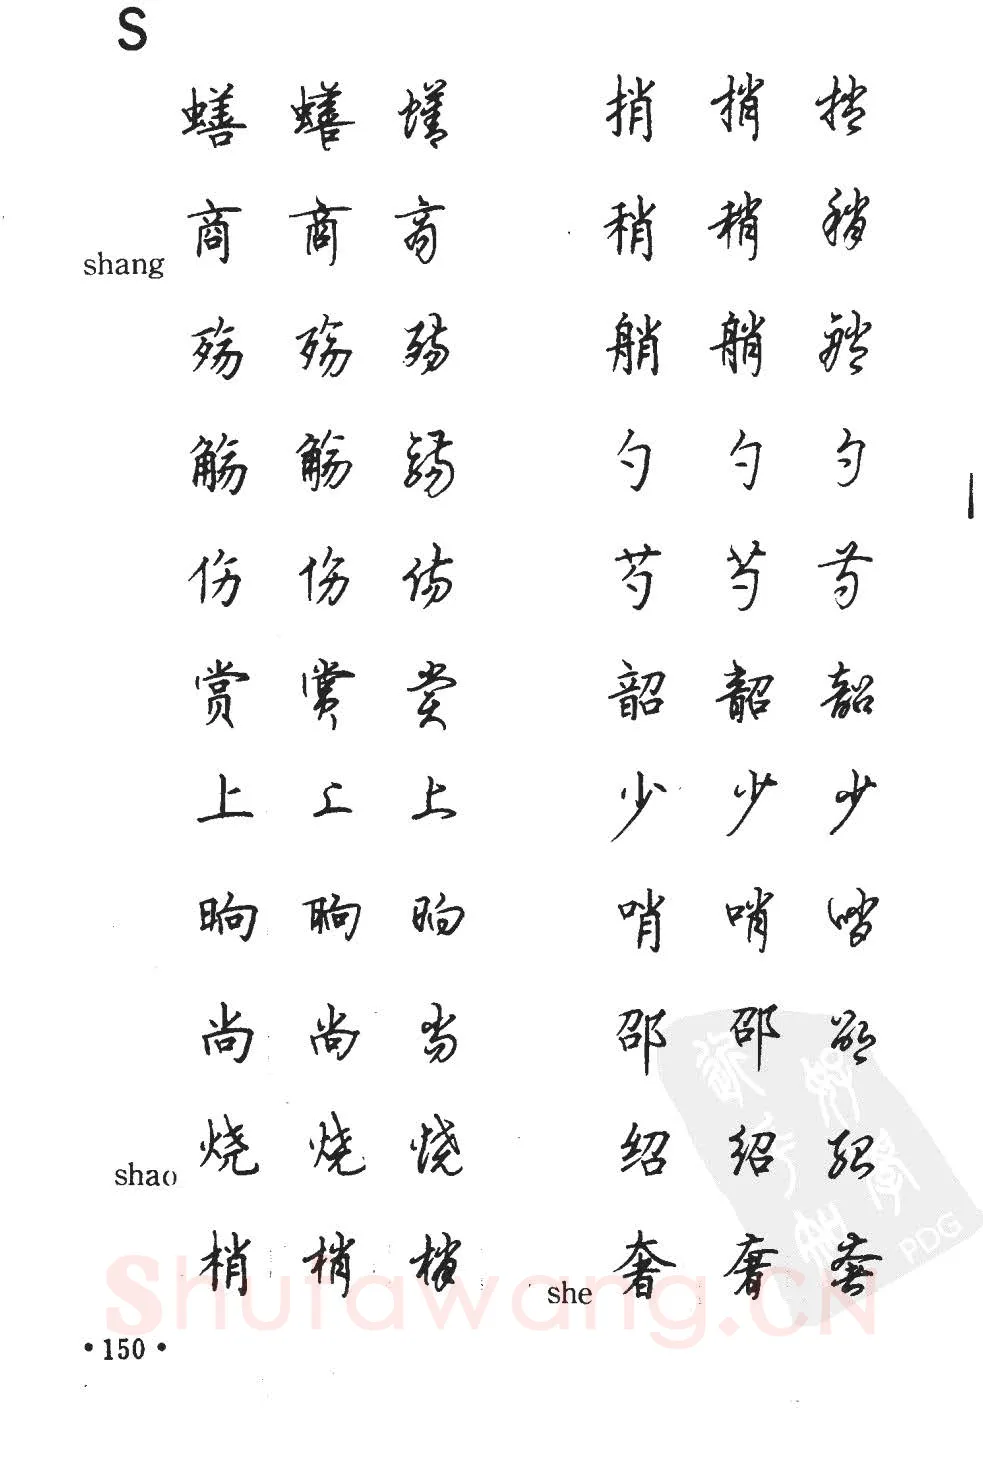 S
蟮 蟮 蟮
shang 商 商 商
殇 殇 殇
觞 觞 觞
伤 伤 伤
赏 赏 赏
上 上 上
晌 晌 晌
尚 尚 尚
shao 烧 烧 烧
梢 梢 梢
捎 捎 捎
稍 稍 稍
艄 艄 艄
勺 勺 勺
芍 芍 芍
韶 韶 韶
少 少 少
哨 哨 哨
邵 邵 邵
绍 绍 绍
she 奢 奢 奢
·150·
Shufawang.CN
PDG